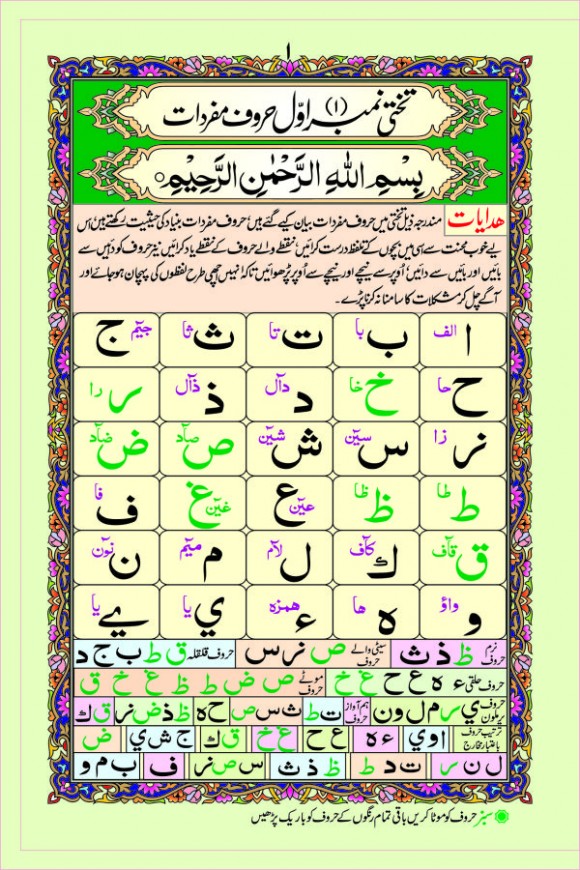 ۱
تختی نمبر (۱) اوّل حروف مفردات
بِسْمِ اللهِ الرَّحْمٰنِ الرَّحِيْمِ ○
ھدایات مندرجہ ذیل تختی میں حروف مفردات بیان کیے گئے ہیں، حروف مفردات بنیاد کی حیثیت رکھتے ہیں اس
لیے خوب محنت سے ہی میں بچوں کے تلفظ درست کرائیں، نقطے والے حروف کے نقطے یاد کرائیں نیز حروف کو دائیں سے
بائیں اور بائیں سے دائیں، اُوپر سے نیچے اور نیچے سے اُوپر پڑھوائیں تاکہ انہیں اچھی طرح لفظوں کی پہچان ہوجائے اور
آگے چل کر مشکلات کا سامنا نہ کرنا پڑے۔
ا الف ب با ت تا ث ثا ج جیٓم
ح حا خ خا د دآل ذ ذآل ر را
ز زا س سیٓن ش شیٓن ص صآد ض ضآد
ط طا ظ ظا ع عیٓن غ غیٓن ف فا
ق قآف ك کآف ل لآم م میٓم ن نوٓن
و واؤ ہ ھا ء ھمزہ ي یا ے یا
نرم حروف ظ ذ ث سیٹی والے حروف ص ز س حروف قلقلہ ق ط ب ج د
حروف حلقی ء ہ ع ح غ خ موٹے حروف ص ض ط ظ غ خ ق
حروف یرملون ي ر م ل و ن ہم آواز حروف ت ط ث س ص ح ہ ظ ذ ض ز ق ك
ترتیب حروف باعتبار مخارج ا و ي ء ہ ع ح غ خ ق ك ج ش ي ض
ل ن ر ت د ط ظ ذ ث س ص ز ف ب م و
سبز حروف کو موٹا کریں باقی تمام رنگوں کے حروف کو باریک پڑھیں